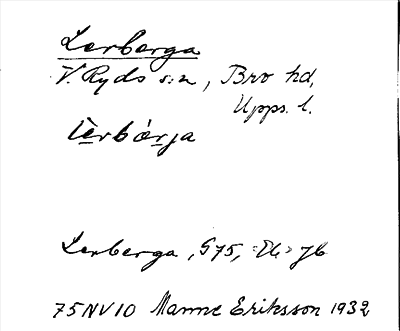 Lerberga
V. Ryds s:n, Bro hd,
Upps. l.
lèrbárja
Lerberga, S75, Jb
75NV10 Manne Eriksson 1932